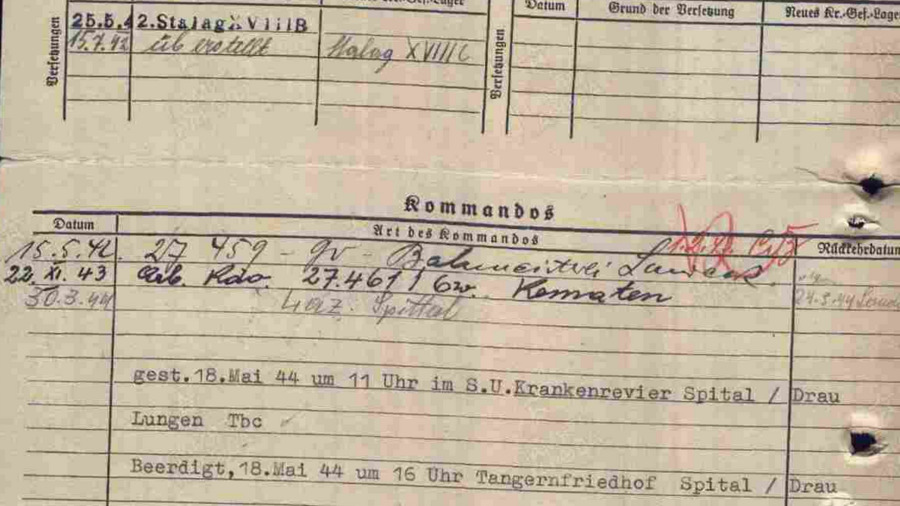 Datum
Grund der Versetzung
Neues Kr.-Gef.-Lager
Versetzungen
25.5.42. Stalag XVIIIB
15.7.42 überstellt Stalag XVIII C
Versetzungen
Kommandos
Datum
Art des Kommandos
Rückkehrdatum
15.5.42. 27 459 - gv - Bahnmeisterei
22. XI. 43 Arb. Kdo. 27.461 / Gw. Kematen
30.3.44 Laz. Spittal
gest.18.Mai 44 um 11 Uhr im S.U.Krankenrevier Spital / Drau
Lungen Tbc
Beerdigt,18.Mai 44 um 16 Uhr Tangernfriedhof Spital / Drau